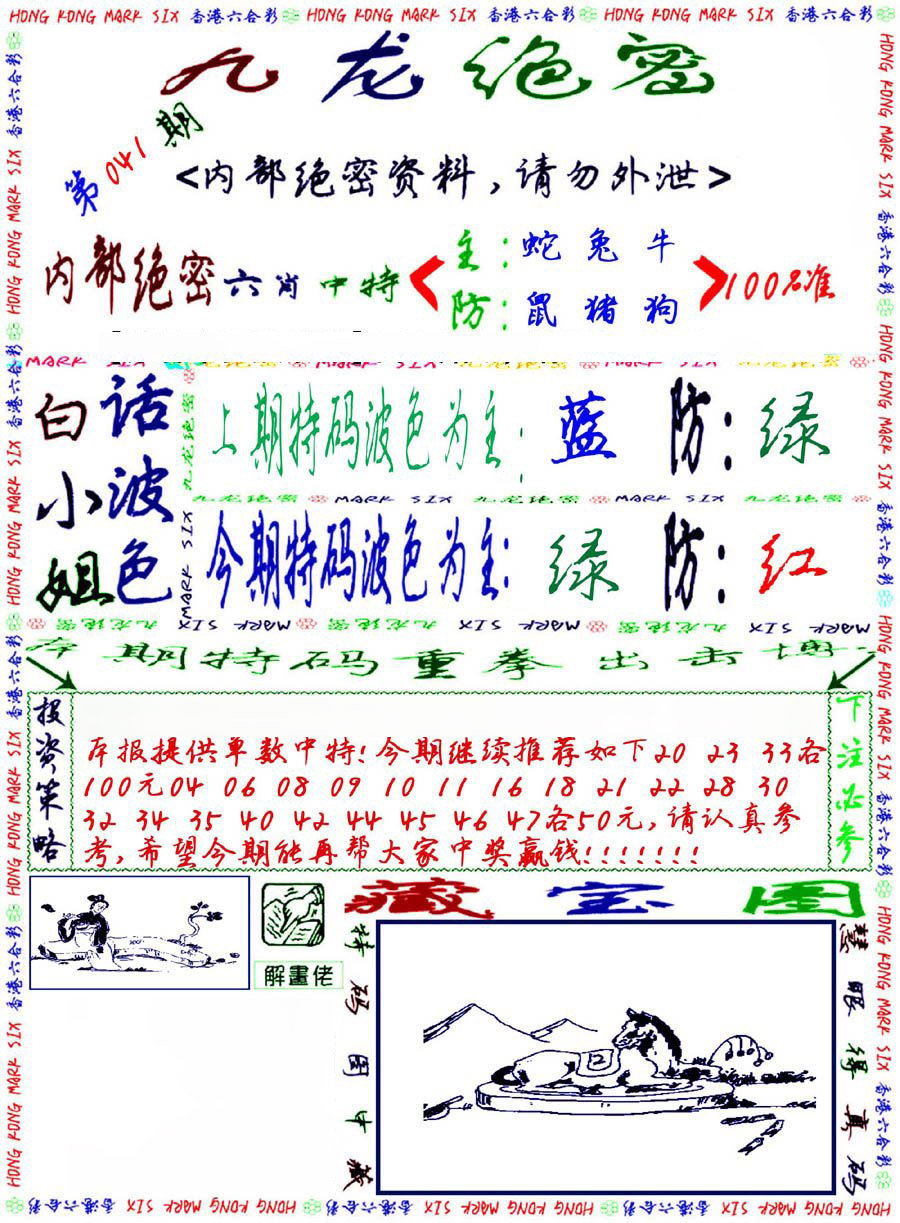 HONG KONG MARK SIX 香港六合彩 HONG KONG MARK SIX 香港六合彩 HONG KONG MARK SIX 香港六合彩
九龙绝密
第041期
<内部绝密资料，请勿外泄>
内部绝密六肖中特
主：蛇 兔 牛
防：鼠 猪 狗
100%准
白话小波姐色
上期特码波色为主：蓝 防：绿
九龙绝密 MARK SIX 九龙绝密 MARK SIX 九龙绝密
今期特码波色为主：绿 防：红
MARK SIX 九龙绝密
本期特码重拳出击博
投资策略
本报提供单数中特！今期继续推荐如下20 23 33各
100元04 06 08 09 10 11 16 18 21 22 28 30
32 34 35 40 42 44 45 46 47各50元，请认真参
考，希望今期能再帮大家中奖赢钱！！！！！！！
下注必参
解畫佬
藏宝图
特码图中藏
慧眼得真码
HONG KONG MARK SIX 香港六合彩